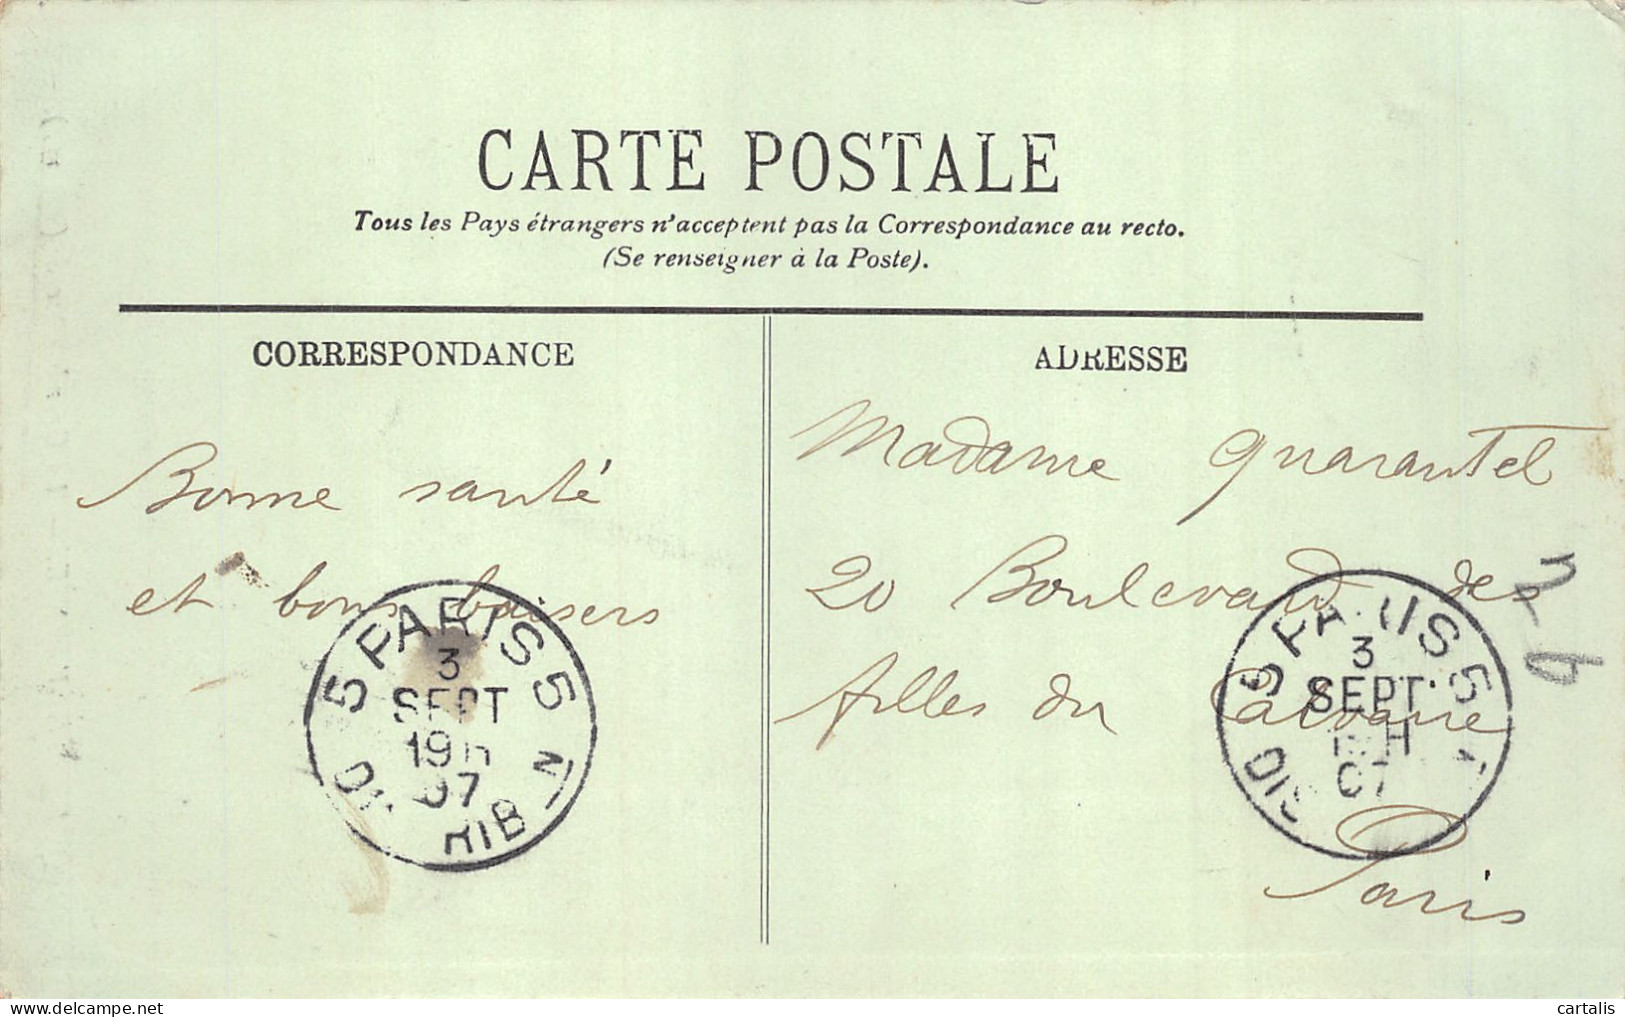 CARTE POSTALE
Tous les Pays étrangers n'acceptent pas la Correspondance au recto.
(Se renseigner à la Poste).
CORRESPONDANCE
Bonne santé
et bons baisers
ADRESSE
Madame Quarantel
20 Boulevard des
filles du Calvaire
Paris
5 PARIS 5
3
SEPT
19H
07
DISTRIB
5 PARIS 5
3
SEPT
H
07
DIS
cartalis